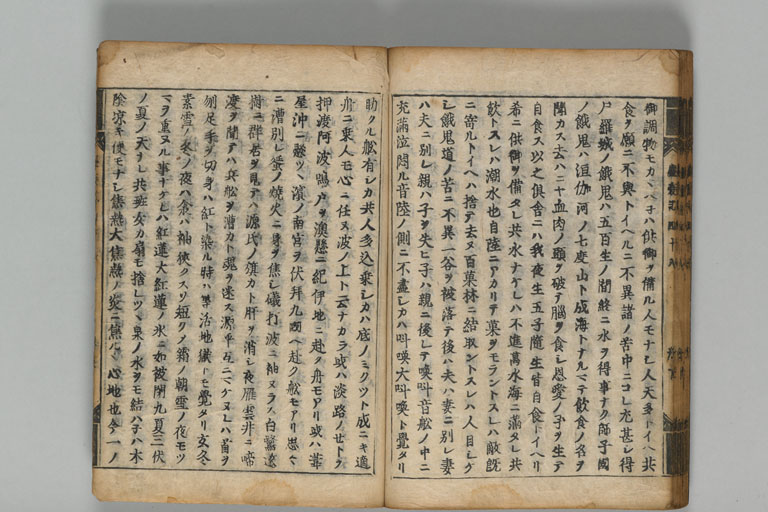 御調物モカヽハ子ハ供御ヲ備ル人モナシ人天多トイヘ共
食ヲ願ニ不與トイヘルニ不異諸ノ苦中ニコレ尤甚シ得
尸羅城ノ餓鬼ハ五百生ノ間終ニ水ヲ得事ナク師子國
ノ餓鬼ハ洹伽河ノ七度山ト成海トナルマテ飲食ノ名ヲ
聞カス去ハニ十血肉ノ頭ヲ破テ腦ヲ食シ恩愛ノ子ヲ生テ
自食ス以之倶舎ニハ我夜生五子隨生皆自食トイヘリ
希ニ供御ヲ備タレ共水ナケレハ不進萬水海ニ滿タレ共
飲トスレハ潮水也自陸ニアカリテ菓ヲモラントスレハ敵既
ニ寄ルトイヘハ捨テ去ヌ百菓林ニ結取ントスレハ人目シケ
シ餓鬼道ノ苦ニ不異一谷ヲ被落テ後ハ夫ハ妻ニ別レ妻
ハ夫ニ別レ親ハ子ヲ失ヒ子ハ親ニ後レテ喚叫音舩ノ中ニ
充滿泣悶ル音陸ノ側ニ不盡シカハ叫喚大叫喚ト覺タリ
助クル舩有シカ共人多込乗シカハ底ノミクツト成ニキ適
舟ニ乗人モ心ニ任ヌ波ノ上ト云ナカラ或ハ淡路ノせトヲ
押渡阿波鳴戸ヲ澳懸ニ紀伊地ニ赴ク舟モアリ或ハ葦
屋沖ニ懸ツヽ濱ノ南宮ヲ伏拜九國ヘ赴ク舩モアリ思々
ニ漕別レ蜑ノ燒火ニ身ヲ焦シ礒打波ニ袖ヌラス白鷺遠
樹ニ群居ヲ見テハ源氏ノ旗カト肝ヲ消シ夜雁雲井ニ啼
渡ヲ聞テハ兵舩ヲ漕カト魂ヲ迷ス源平互ニマケヌレハ首ヲ
刎足手ヲ切身ハ紅ト染ル時ハ等活地獄トモ覺タリ玄冬
素雪ノ冬ノ夜ハ衾ハ袖狹クスソ短ク霜ノ朝雪ノ夜モツ
マヲ重ヌル事ナケレハ紅蓮大紅蓮ノ氷ニ如被閉九夏三伏
ノ夏ノ天ナレ共班女カ扇モ捨レツヽ泉ノ水ヲモ結ハ子ハ木
陰凉キ便モナシ焦熱大焦熱ノ炎ニ焦ルヽ心地也今一ノ